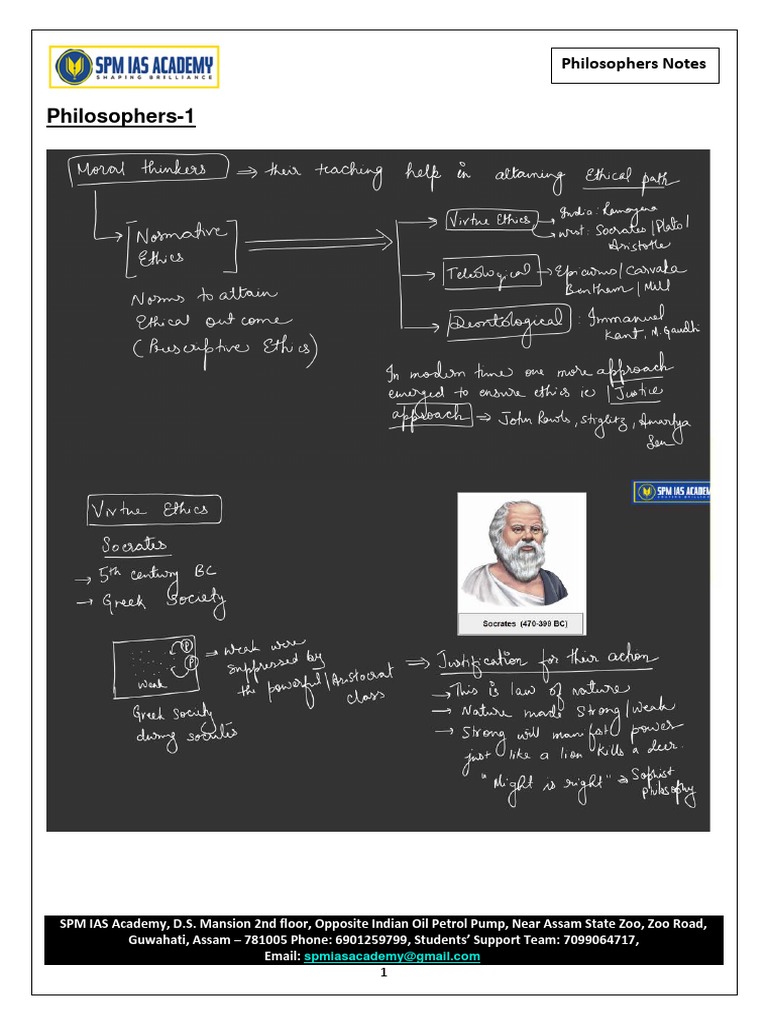 SPM IAS ACADEMY
SHAPING BRILLIANCE
Philosophers Notes
Philosophers-1
Moral thinkers ⇒ their teaching help in attaining Ethical path
Normative Ethics
Norms to attain
Ethical outcome
(Prescriptive Ethics)
Virtue Ethics → India: Ramayana
→ West: Socrates/Plato/
Aristotle
Teleological → Epicurus/Carvaka
Bentham/Mill
Deontological : Immanuel
Kant, M. Gandhi
In modern time one more approach
emerged to ensure ethics ie Justice
approach ⇒ John Rawls, Stiglitz, Amartya
Sen
SPM IAS ACADEMY
Virtue Ethics
Socrates
→ 5th century BC
→ Greek Society
Socrates (470-399 BC)
P
P
Weak
Greek Society
during Socrates
→ Weak were
suppressed by
the powerful/Aristocrat
class
⇒ Justification for their action
→ This is law of nature
→ Nature made Strong/Weak
→ Strong will manifest power
just like a lion kills a deer.
"Might is right" ⇒ Sophist
philosophy
SPM IAS Academy, D.S. Mansion 2nd floor, Opposite Indian Oil Petrol Pump, Near Assam State Zoo, Zoo Road,
Guwahati, Assam – 781005 Phone: 6901259799, Students’ Support Team: 7099064717,
Email: spmiasacademy@gmail.com
1